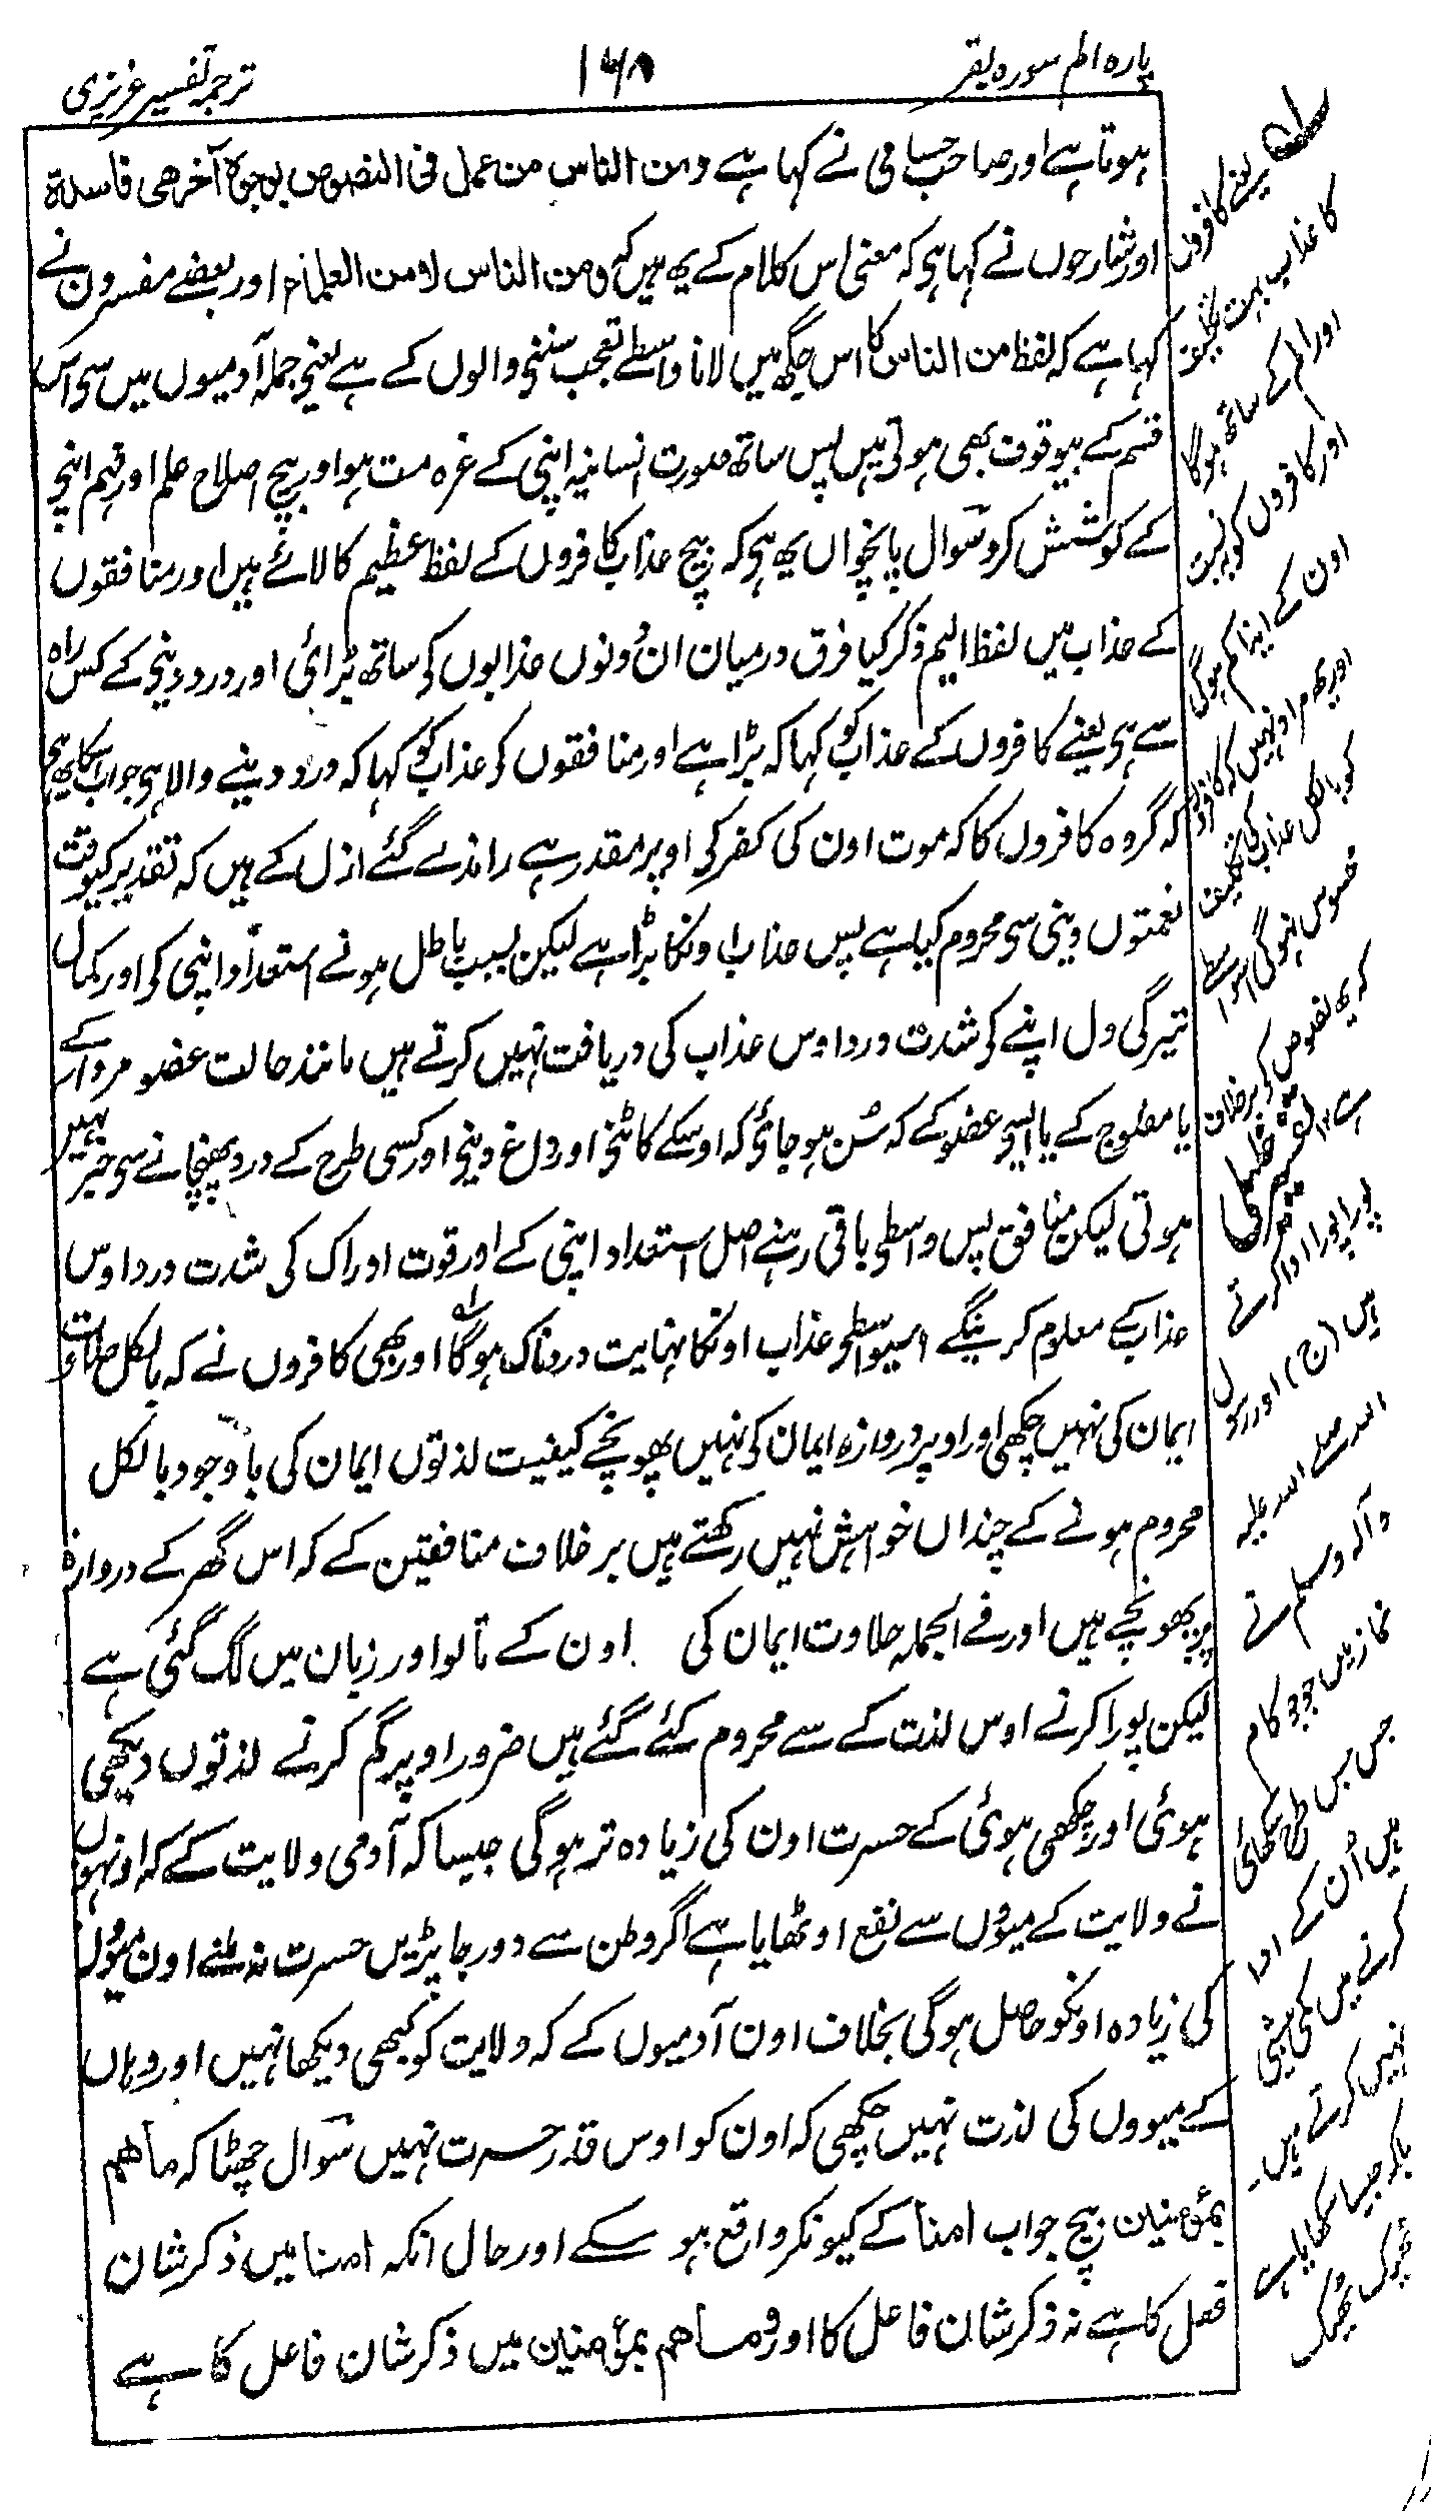 پاره الم سوره بقر
۱۶۸
ترجمہ تفسیر عزیزی
ہوتا ہے اور صاحب حسامی نے کہا ہے ومن الناس من عمل فی النصوص بوجوہ آخر ھی فاسدة
اور شارحوں نے کہا ہی کہ معنی اس کلام کے یھ ہیں کہ ومن الناس لا من العلماء اور بعضے مفسرون نے
کہا ہے کہ لفظ من الناس کا اس جگھ میں لانا واسطے تعجب سننی والوں کے ہے یعنی جملہ آدمیوں میں سی اس
قسم کے بیوقوف بھی ہوتی ہیں پس ساتھ صورت انسانیہ اپنی کے غرہ مت ہو اور بیچ اصلاح علم اور فہم اپنی
کے کوشش کرو سوال پانچواں یھ ہی کہ بیچ عذاب کافروں کے لفظ عظیم کا لائے ہیں اور منافقوں
کے عذاب میں لفظ الیم ذکر کیا فرق درمیان ان دونوں عذابوں کی ساتھ بڑائی اور درد دینی کے کس راہ
سے ہی یعنے کافروں کے عذاب کو کہا کہ بڑا ہے اور منافقوں کی عذاب کو کہا کہ درد دینے والا ہی جواب اسکا یھ ہی
کہ گروہ کافروں کا کہ موت اون کی کفر کی اوپر مقدر ہے راندے گئے ازل کے ہیں کہ تقدیر کیوقت
نعمتوں دینی سی محروم کیا ہے پس عذاب اونکا بڑا ہے لیکن بسبب باطل ہونے استعداد اپنی کی اور کمال
تیرگی دل اپنے کی شدت درد اوس عذاب کی دریافت نہیں کرتے ہیں مانند حالت عضو مردار کے
یا مفلوج کے یا ایسی عضو کے کہ سُن ہو جائی کہ اوسکے کاٹنی اور داغ دینی اور کسی طرح کے درد پھنچانے سی خبر نہیں
ہوتی لیکن منافق پس واسطی باقی رہنے اصل استعداد اپنی کے اور قوت ادراک کی شدت درد اوس
عذاب کے معلوم کرینگے اسیواسطی عذاب اونکا نہایت دردناک ہوگا اور بھی کافروں نے کہ بالکل حلاوت
ایمان کی نہیں چکھی اور اوپر دروازہ ایمان کی نہیں پھونچے کیفیت لذتوں ایمان کی باوجود بالکل
محروم ہونے کے چنداں خواہش نہیں رکھتے ہیں برخلاف منافقین کے کہ اس گھر کے دروازہ
پر پھونچے ہیں اور فے الجملہ حلاوت ایمان کی اون کے تالو اور زبان میں لگ گئی ہے
لیکن پورا کرنے اوس لذت کے سے محروم کئے گئے ہیں ضرور اوپر گم کرنے لذتوں دیکھی
ہوئی اور چکھی ہوئی کے حسرت اون کی زیادہ تر ہوگی جیسا کہ آدمی ولایت کے کہ اونہوں
نے ولایت کے میووں سے نفع اوٹھایا ہے اگر وطن سے دور جا پڑیں حسرت نہ ملنے اون میوؤں
کی زیادہ اونکو حاصل ہوگی بخلاف اون آدمیوں کے کہ ولایت کو کبھی دیکھا نہیں اور وہاں
کے میووں کی لذت نہیں چکھی کہ اون کو اوس قدر حسرت نہیں سوال چھٹا کہ ما ھم
بمؤمنین بیچ جواب امنا کے کیونکر واقع ہو سکے اور حال انکہ امنا میں ذکر شان
فعل کا ہے نہ ذکر شان فاعل کا اور وما ھم بمؤمنین میں ذکر شان فاعل کا ہے
یعنے کافروں
کا عذاب بہت تکلیف
اور الم کے ساتھ ہوگا
اور کافروں کو بہ نسبت
اون کے ایذا کم ہوگی
اور یھ مراد نہیں کہ کافروں
کو بالکل عذاب کی تکلیف
محسوس نہوگی اسواسطے
کہ یھ نصوص کی برخلاف
ہے
پورا پورا ادا کرتے
ہیں (ج) اور رسول
اللہ صلے اللہ علیہ
وآلہ وسلم نے
نماز میں جو جو کام
جس جس طرح سکھائی
ہیں اُن کے ادا
کرنے میں کمی بیشی
نہیں کرتے ہیں۔
بلکہ جیسا سکھایا ہے